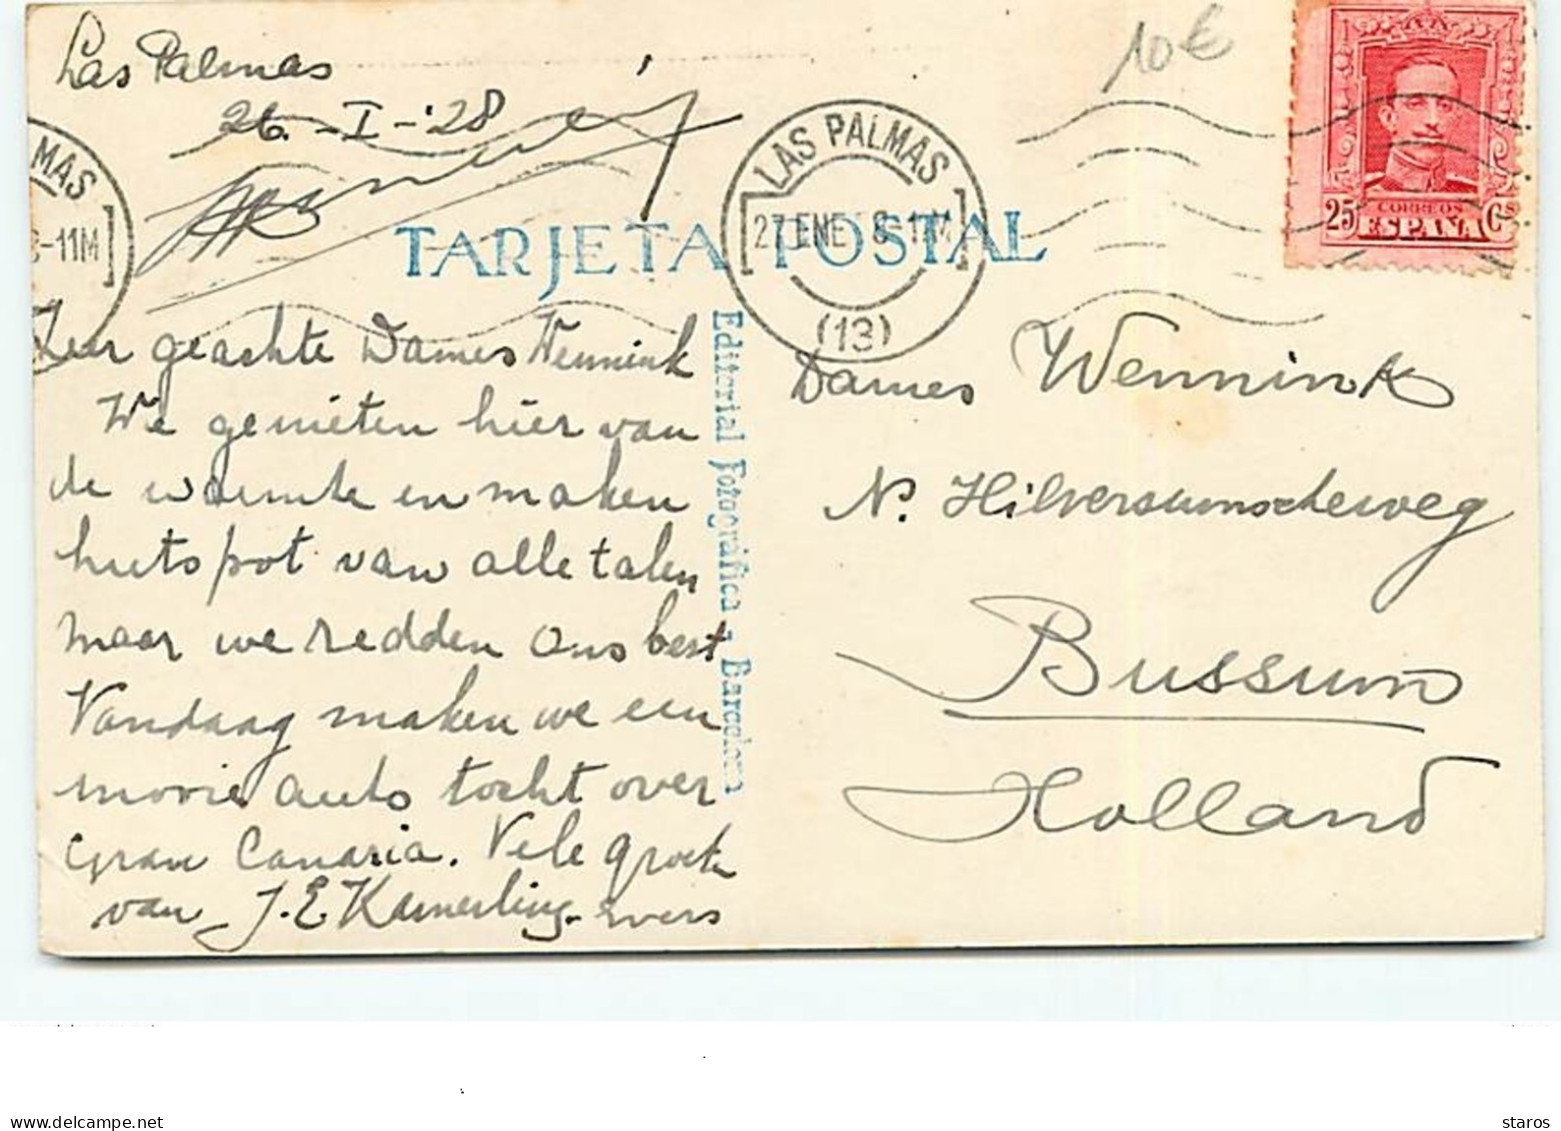 Las Palmas
26-I-'28
10€
MAS
8-11M
LAS PALMAS
27 ENE 8-11M
(13)
25 CORREOS Cs
ESPAÑA
TARJETA POSTAL
Editorial Fotográfica - Barcelona
Zeer geachte Dames Wennink
We genieten hier van
de warmte en maken
hutspot van alle talen
maar we redden ons best
Vandaag maken we een
mooie auto tocht over
Gran Canaria. Vele groeten
van J. E. Kamerling-Evers
Dames Wennink
N. Hilversumscheweg
Bussum
Holland
www.delcampe.net
staros